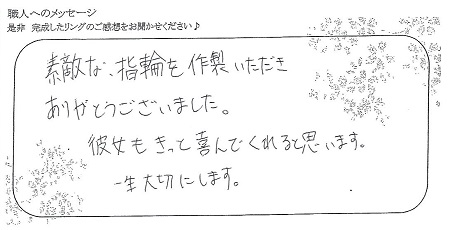 職人へのメッセージ
是非 完成したリングのご感想をお聞かせください♪
素敵な、指輪を作製いただき
ありがとうございました。
彼女もきっと喜んでくれると思います。
一生大切にします。